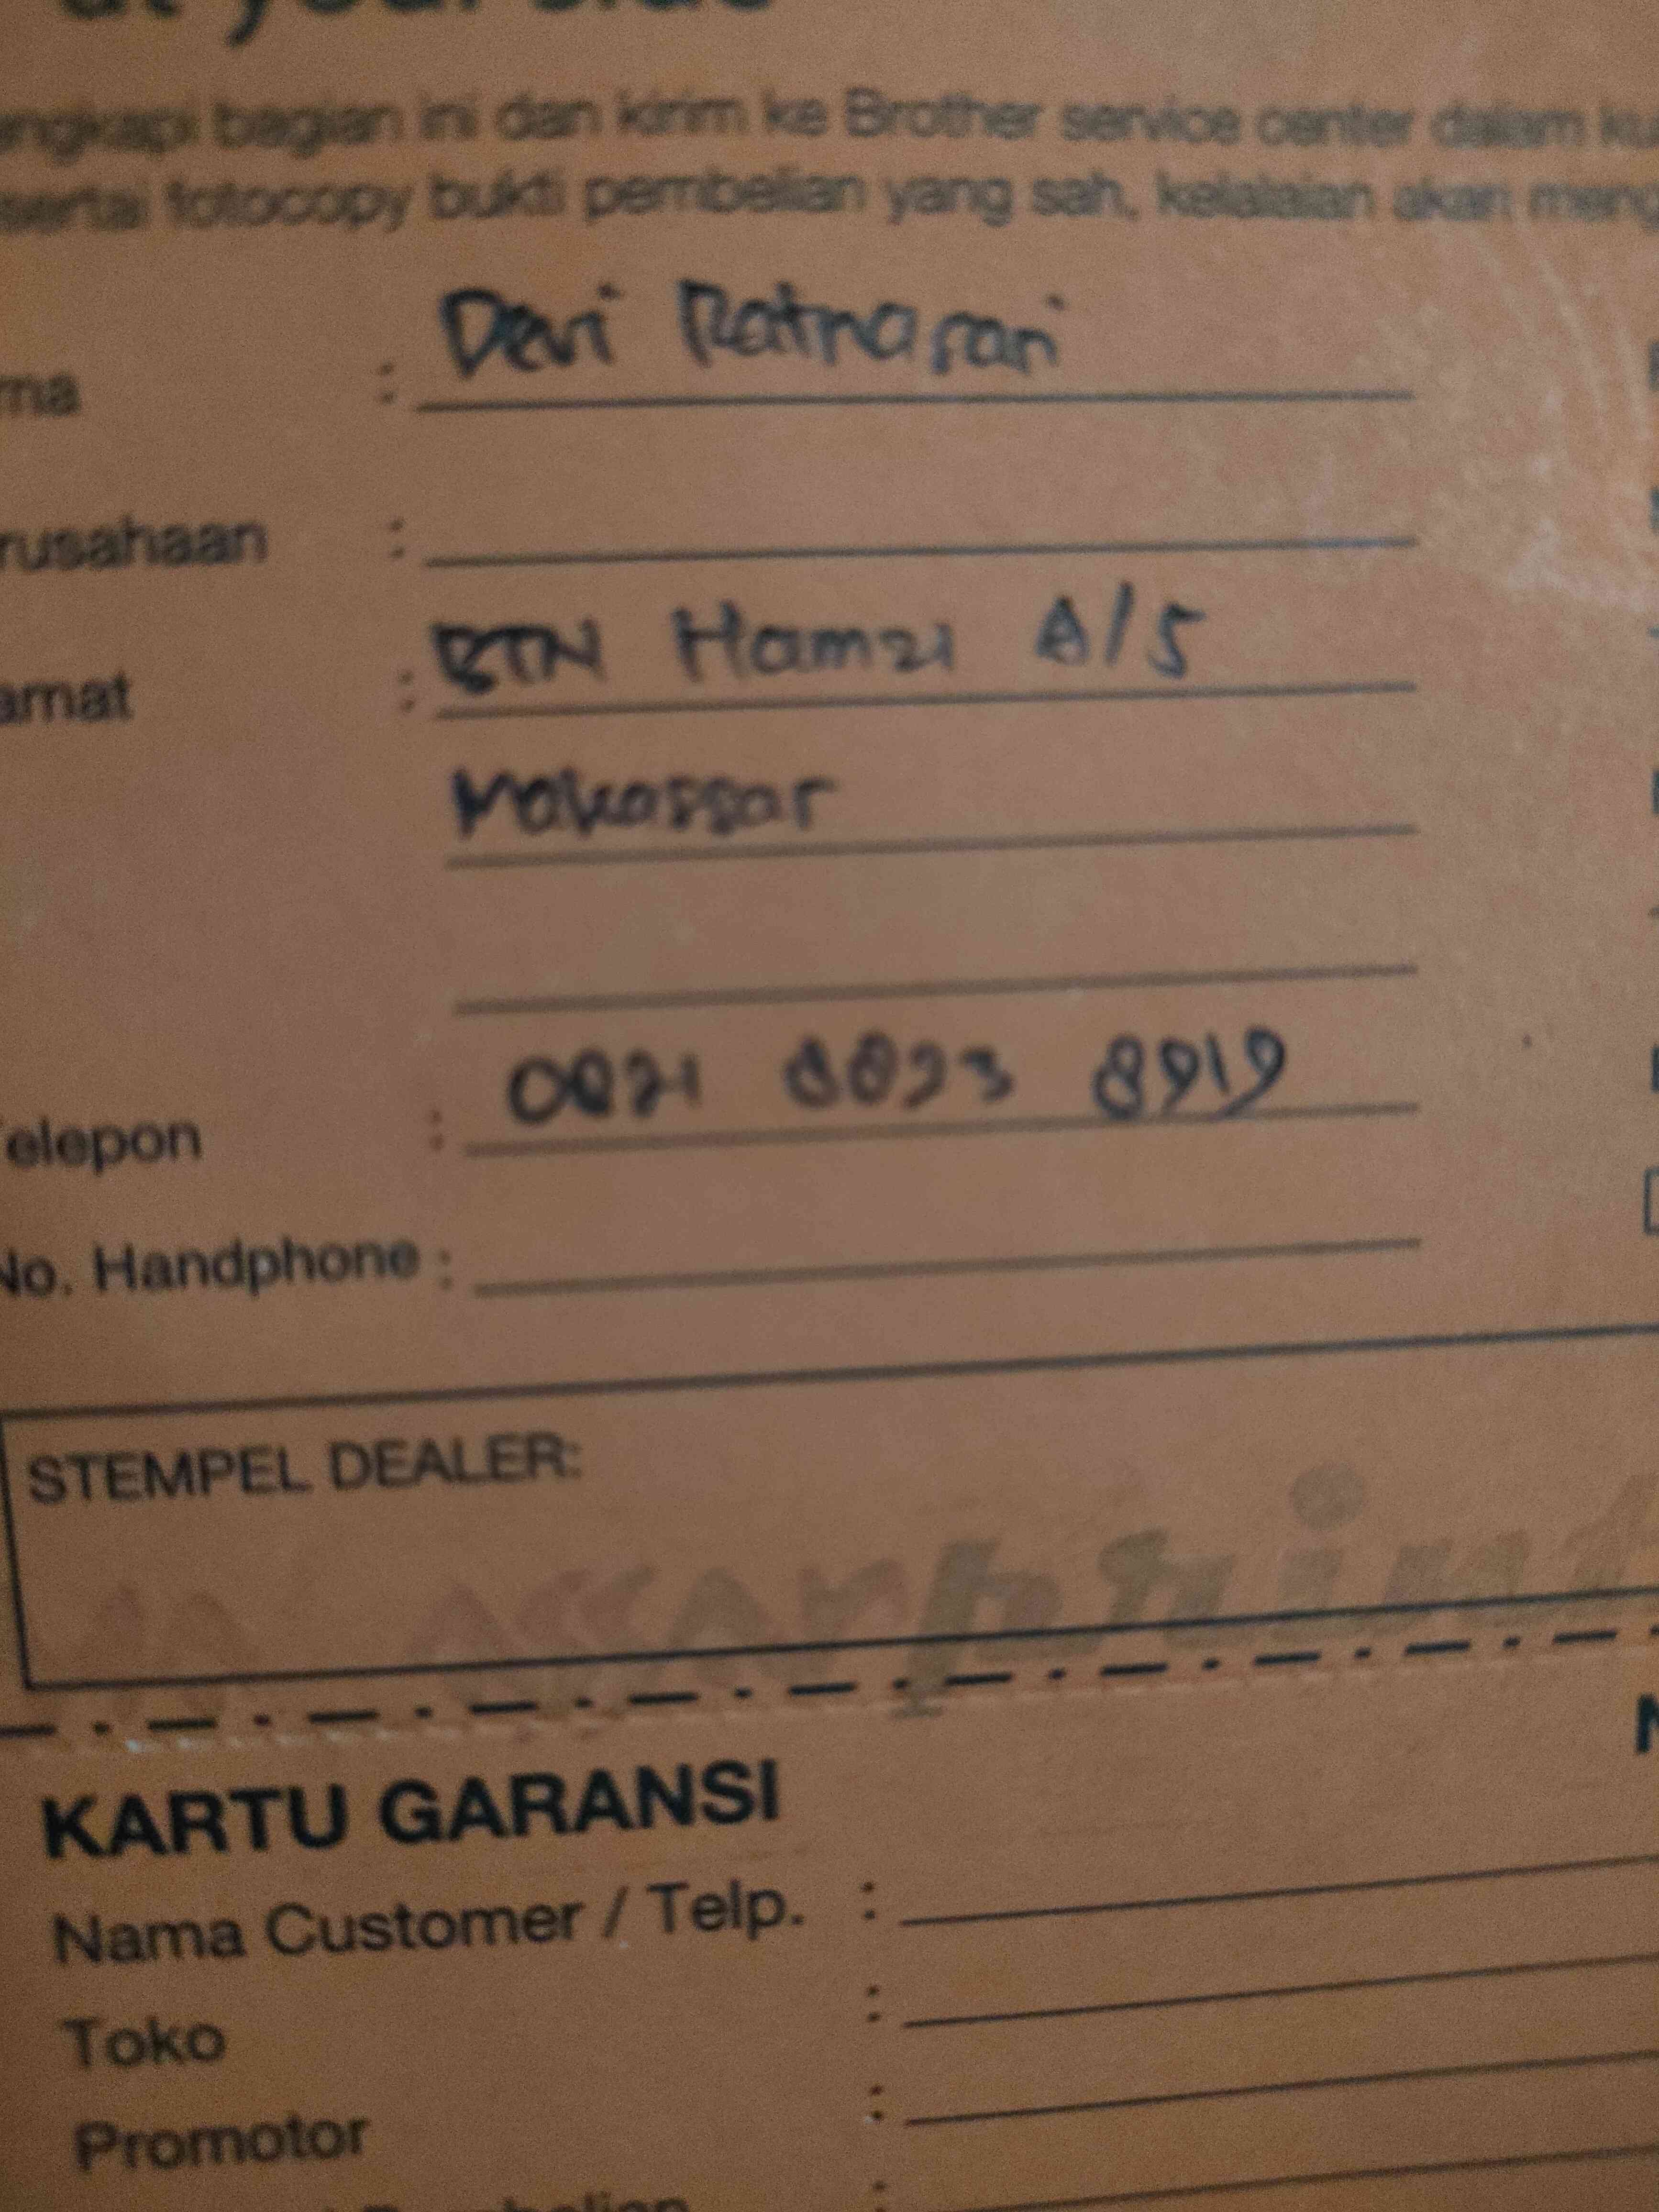 at your side
engkapi bagian ini dan kirim ke Brother service center dalam ku
sertai fotocopy bukti pembelian yang sah, kelalaian akan meng
ma : Devi Ratnasari
rusahaan :
amat : BTN Hamzi A/5
Makassar
Telepon : 0821 8823 8919
No. Handphone :
STEMPEL DEALER:
Makassarprint
KARTU GARANSI
Nama Customer / Telp. :
Toko :
Promotor :